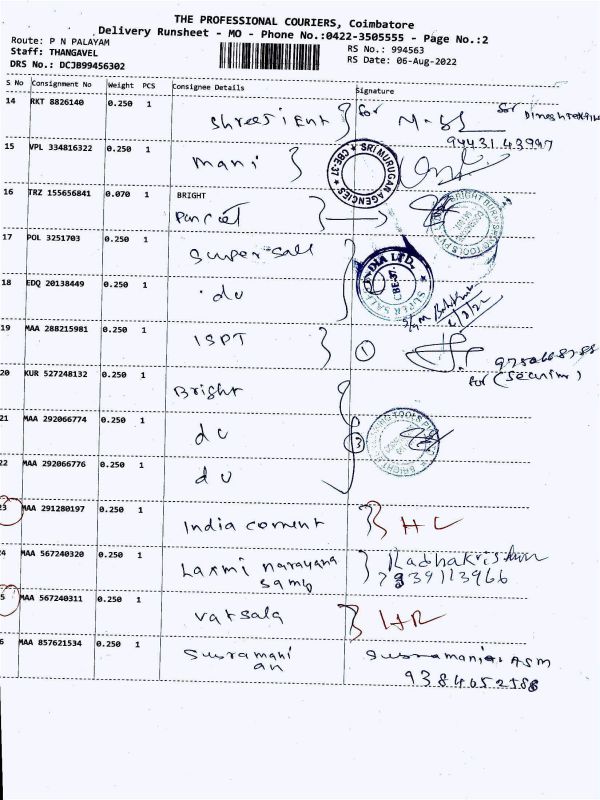 THE PROFESSIONAL COURIERS, Coimbatore
Delivery Runsheet - MO - Phone No.:0422-3505555 - Page No.:2
Route: P N PALAYAM
RS No.: 994563
Staff: THANGAVEL
RS Date: 06-Aug-2022
DRS No.: DCJB99456302
S No Consignment No Weight PCS Consignee Details Signature
14 RKT 8826140 0.250 1
Shreesi Ent for
94431 43997
15 VPL 334816322 0.250 1
mani
SRI MURUGAN AGENCIES CBE-37
16 TRZ 155656841 0.070 1 BRIGHT
parcel
17 POL 3251703 0.250 1
Super sall
18 EDQ 20138449 0.250 1
du
INDIA LTD. CBE-37.
19 MAA 288215981 0.250 1
ISPT 1
for
20 KUR 527248132 0.250 1
Bright
21 MAA 292066774 0.250 1
du 3
22 MAA 292066776 0.250 1
du
23 MAA 291280197 0.250 1
India coment HC
24 MAA 567240320 0.250 1
Laxmi narayana Radhakrishnan
samy
25 MAA 567240311 0.250 1
vatsala
26 MAA 857621534 0.250 1
Subramani
an
ASM